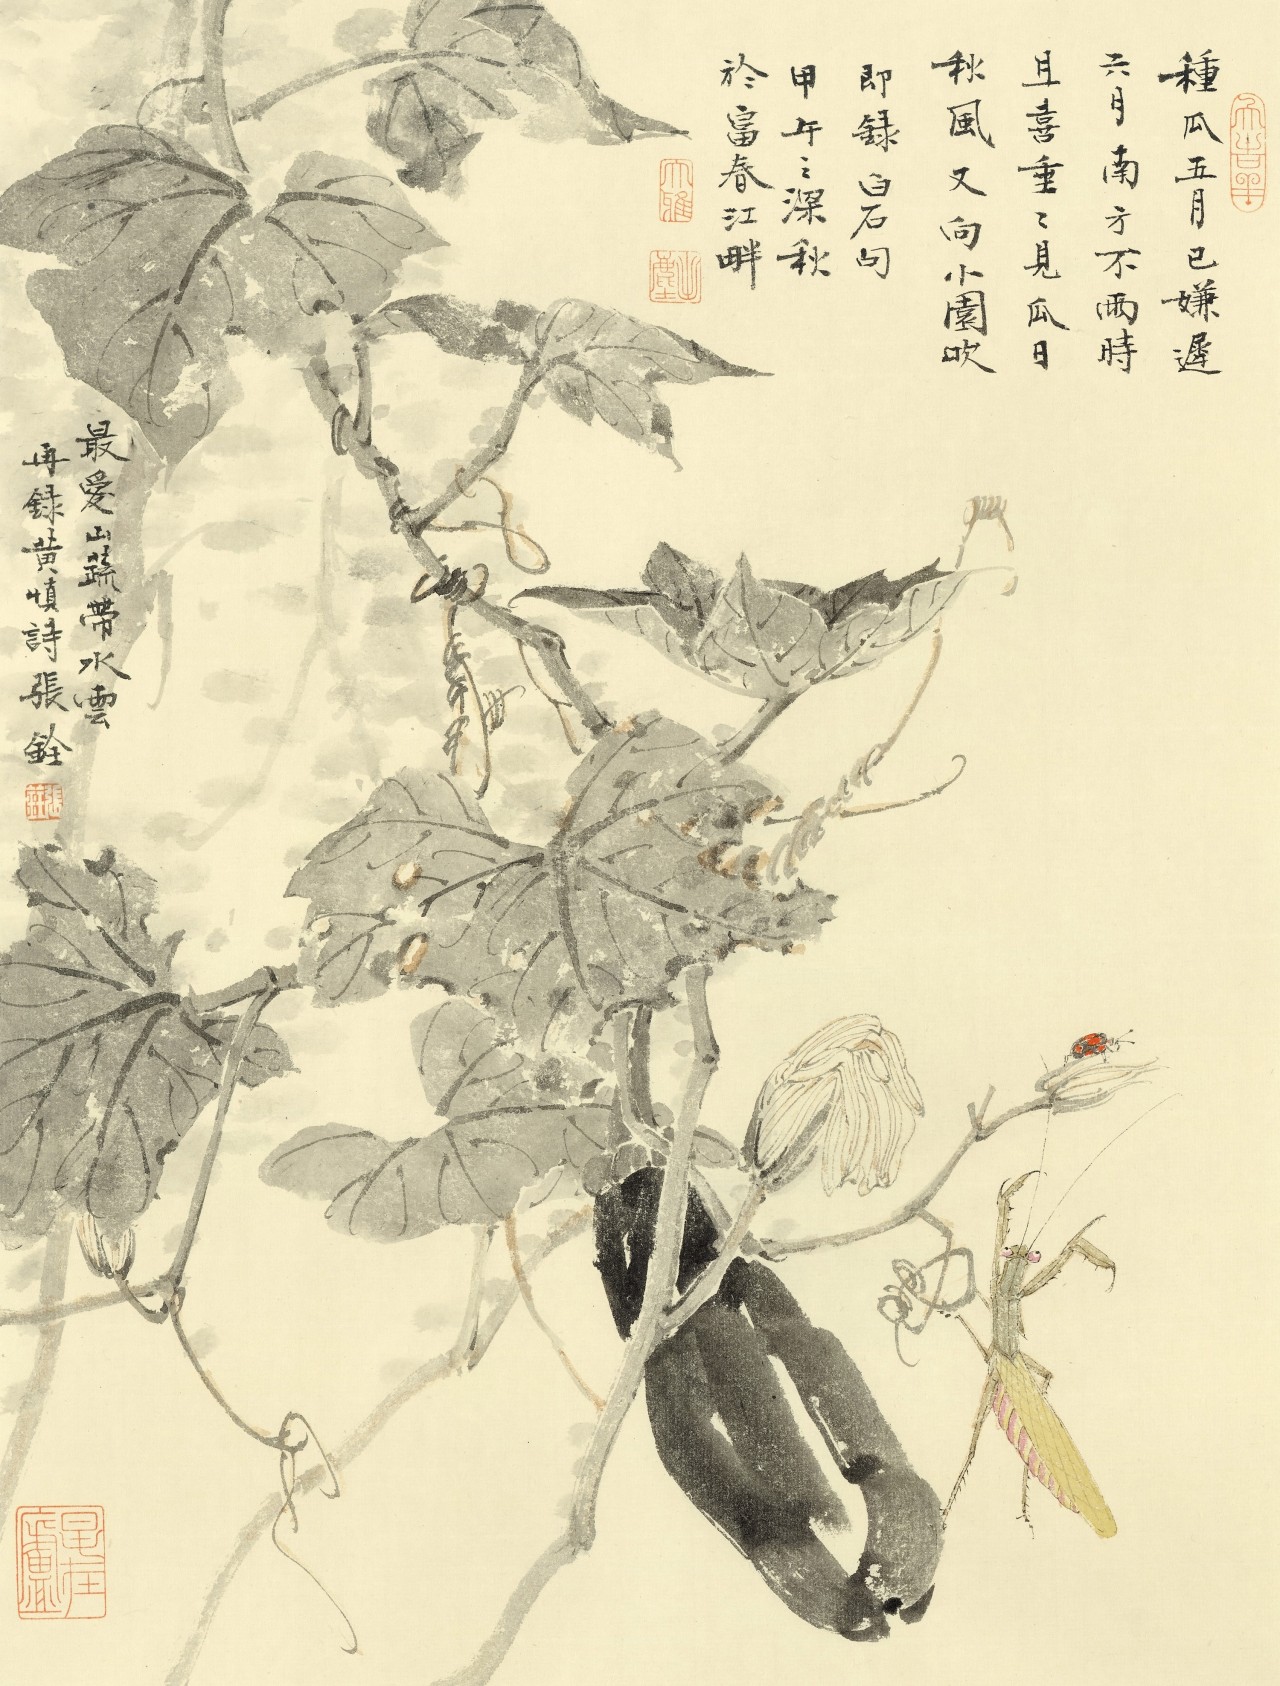 種瓜五月已嫌遲
六月南方不雨時
且喜重〻見瓜日
秋風又向小園吹
即錄白石句
甲午〻深秋
於富春江畔
最愛山蔬帶水雲
再錄黃慎詩張銓
大雅
出塵